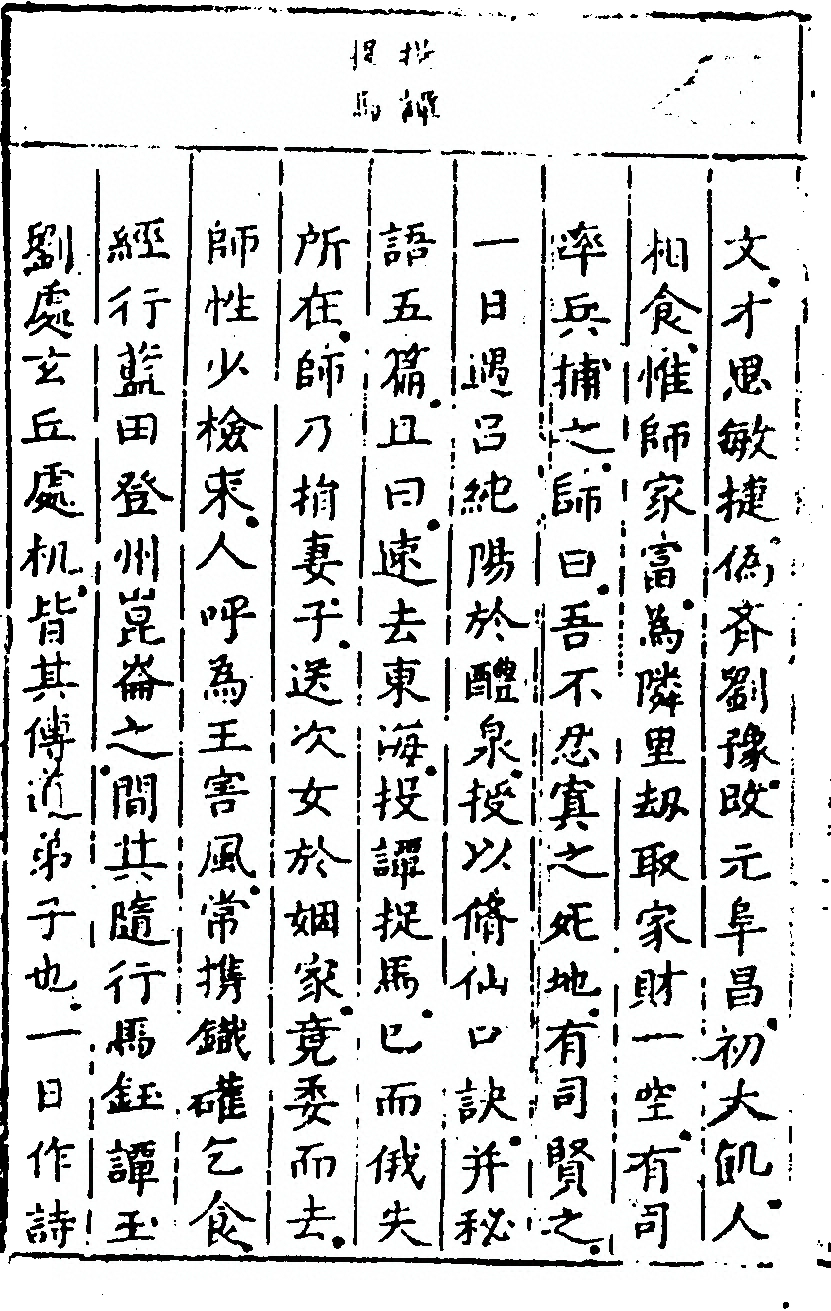 投譚
捉馬
文才思敏捷偽齊劉豫改元阜昌初大飢人
相食惟師家富為隣里劫取家財一空有司
率兵捕之師曰吾不忍寘之死地有司賢之
一日遇呂純陽於醴泉授以脩仙口訣并秘
語五篇且曰速去東海投譚捉馬已而俄失
所在師乃捐妻子送次女於姻家竟委而去
師性少檢束人呼為王害風常携鐵礶乞食
經行藍田登州崑崙之間其隨行馬鈺譚玉
劉處玄丘處机皆其傳道弟子也一日作詩